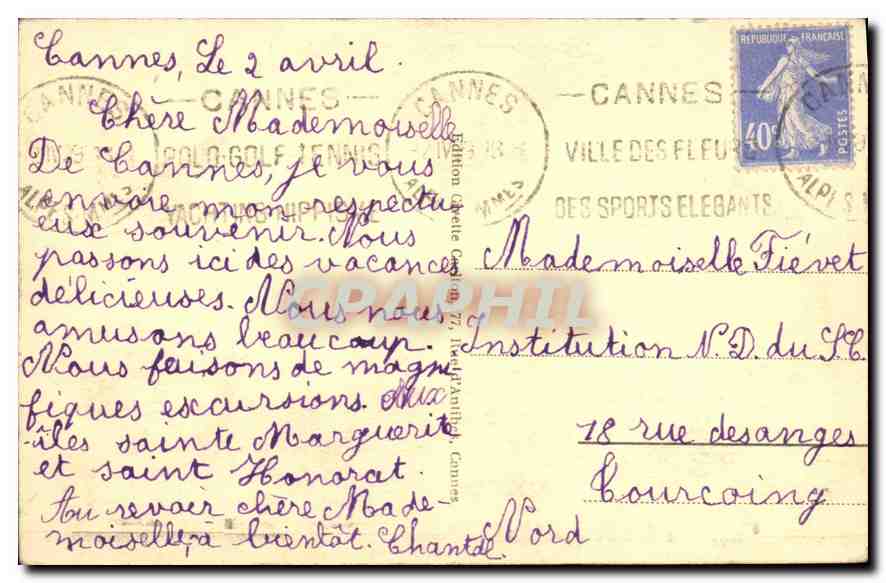 Cannes, Le 2 avril.
Chère Mademoiselle
De Cannes, je vous
envoie mon respectu
eux souvenir. Nous
passons ici des vacances
délicieuses. Nous nous
amusons beaucoup.
Nous faisons de magni
fiques excursions. Aux
îles sainte Marguerite
et saint Honorat.
Au revoir chère Made-
moiselle, à bientôt. Chantal.
Mademoiselle Fiévet
Institution N.D. du S.C.
18 rue des anges
Tourcoing
Nord
CANNES
GOLF TENNIS
YACHTING HIPPISME
CANNES
ALPES MMES
CANNES
VILLE DES FLEURS
DES SPORTS ELEGANTS
CANNES
REPUBLIQUE FRANÇAISE
40c
POSTES
Edition Giletta
77, Rue d'Antibes, Cannes
CPAPHIL